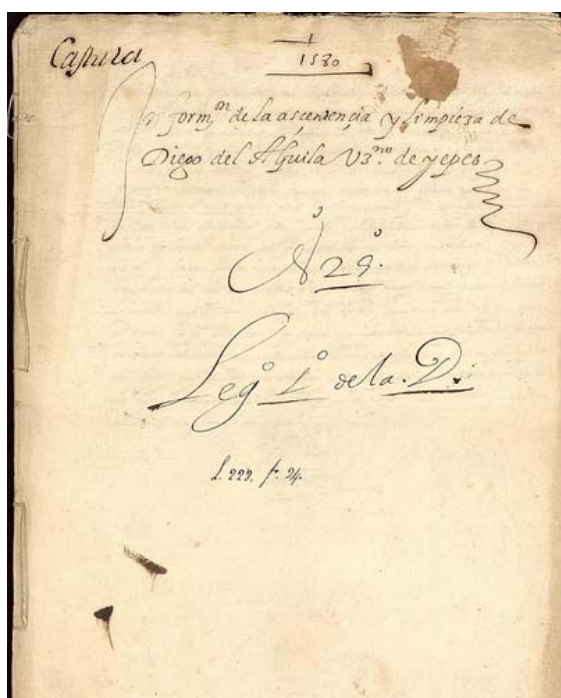 1580
Informon de la ascendencia y limpieza de
Diego del Aguila Vzno. de yepes
No 29.
Lego 1o de la D.
L. 222. fo. 24.